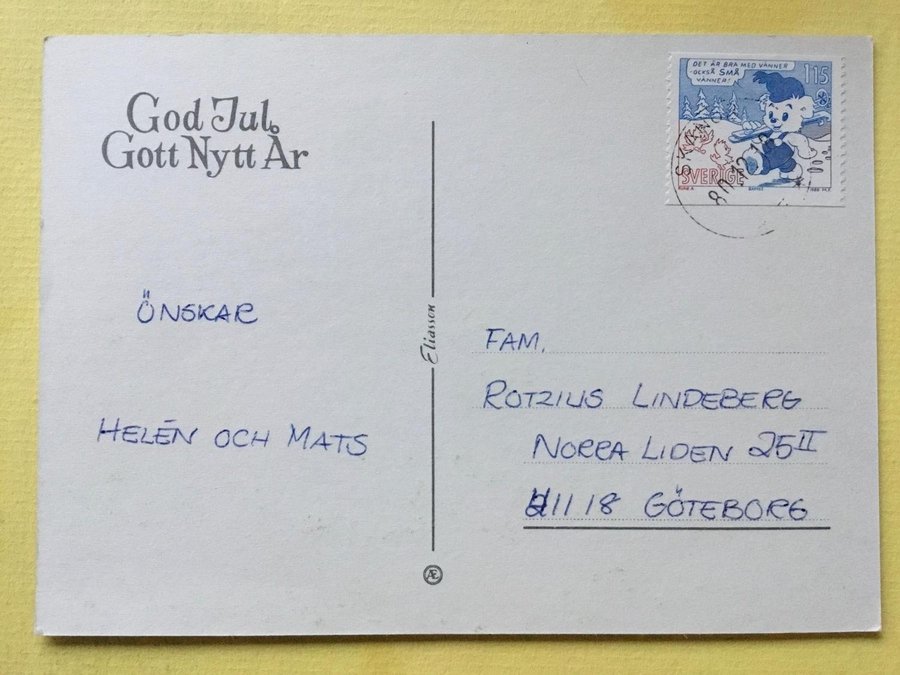 God Jul
Gott Nytt År
ÖNSKAR
HELÉN OCH MATS
Eliasson
Æ
DET ÄR BRA MED VÄNNER
OCKSÅ SMÅ
VÄNNER!
115
SVERIGE
FAM.
ROTZIUS LINDEBERG
NORRA LIDEN 25 II
411 18 GÖTEBORG